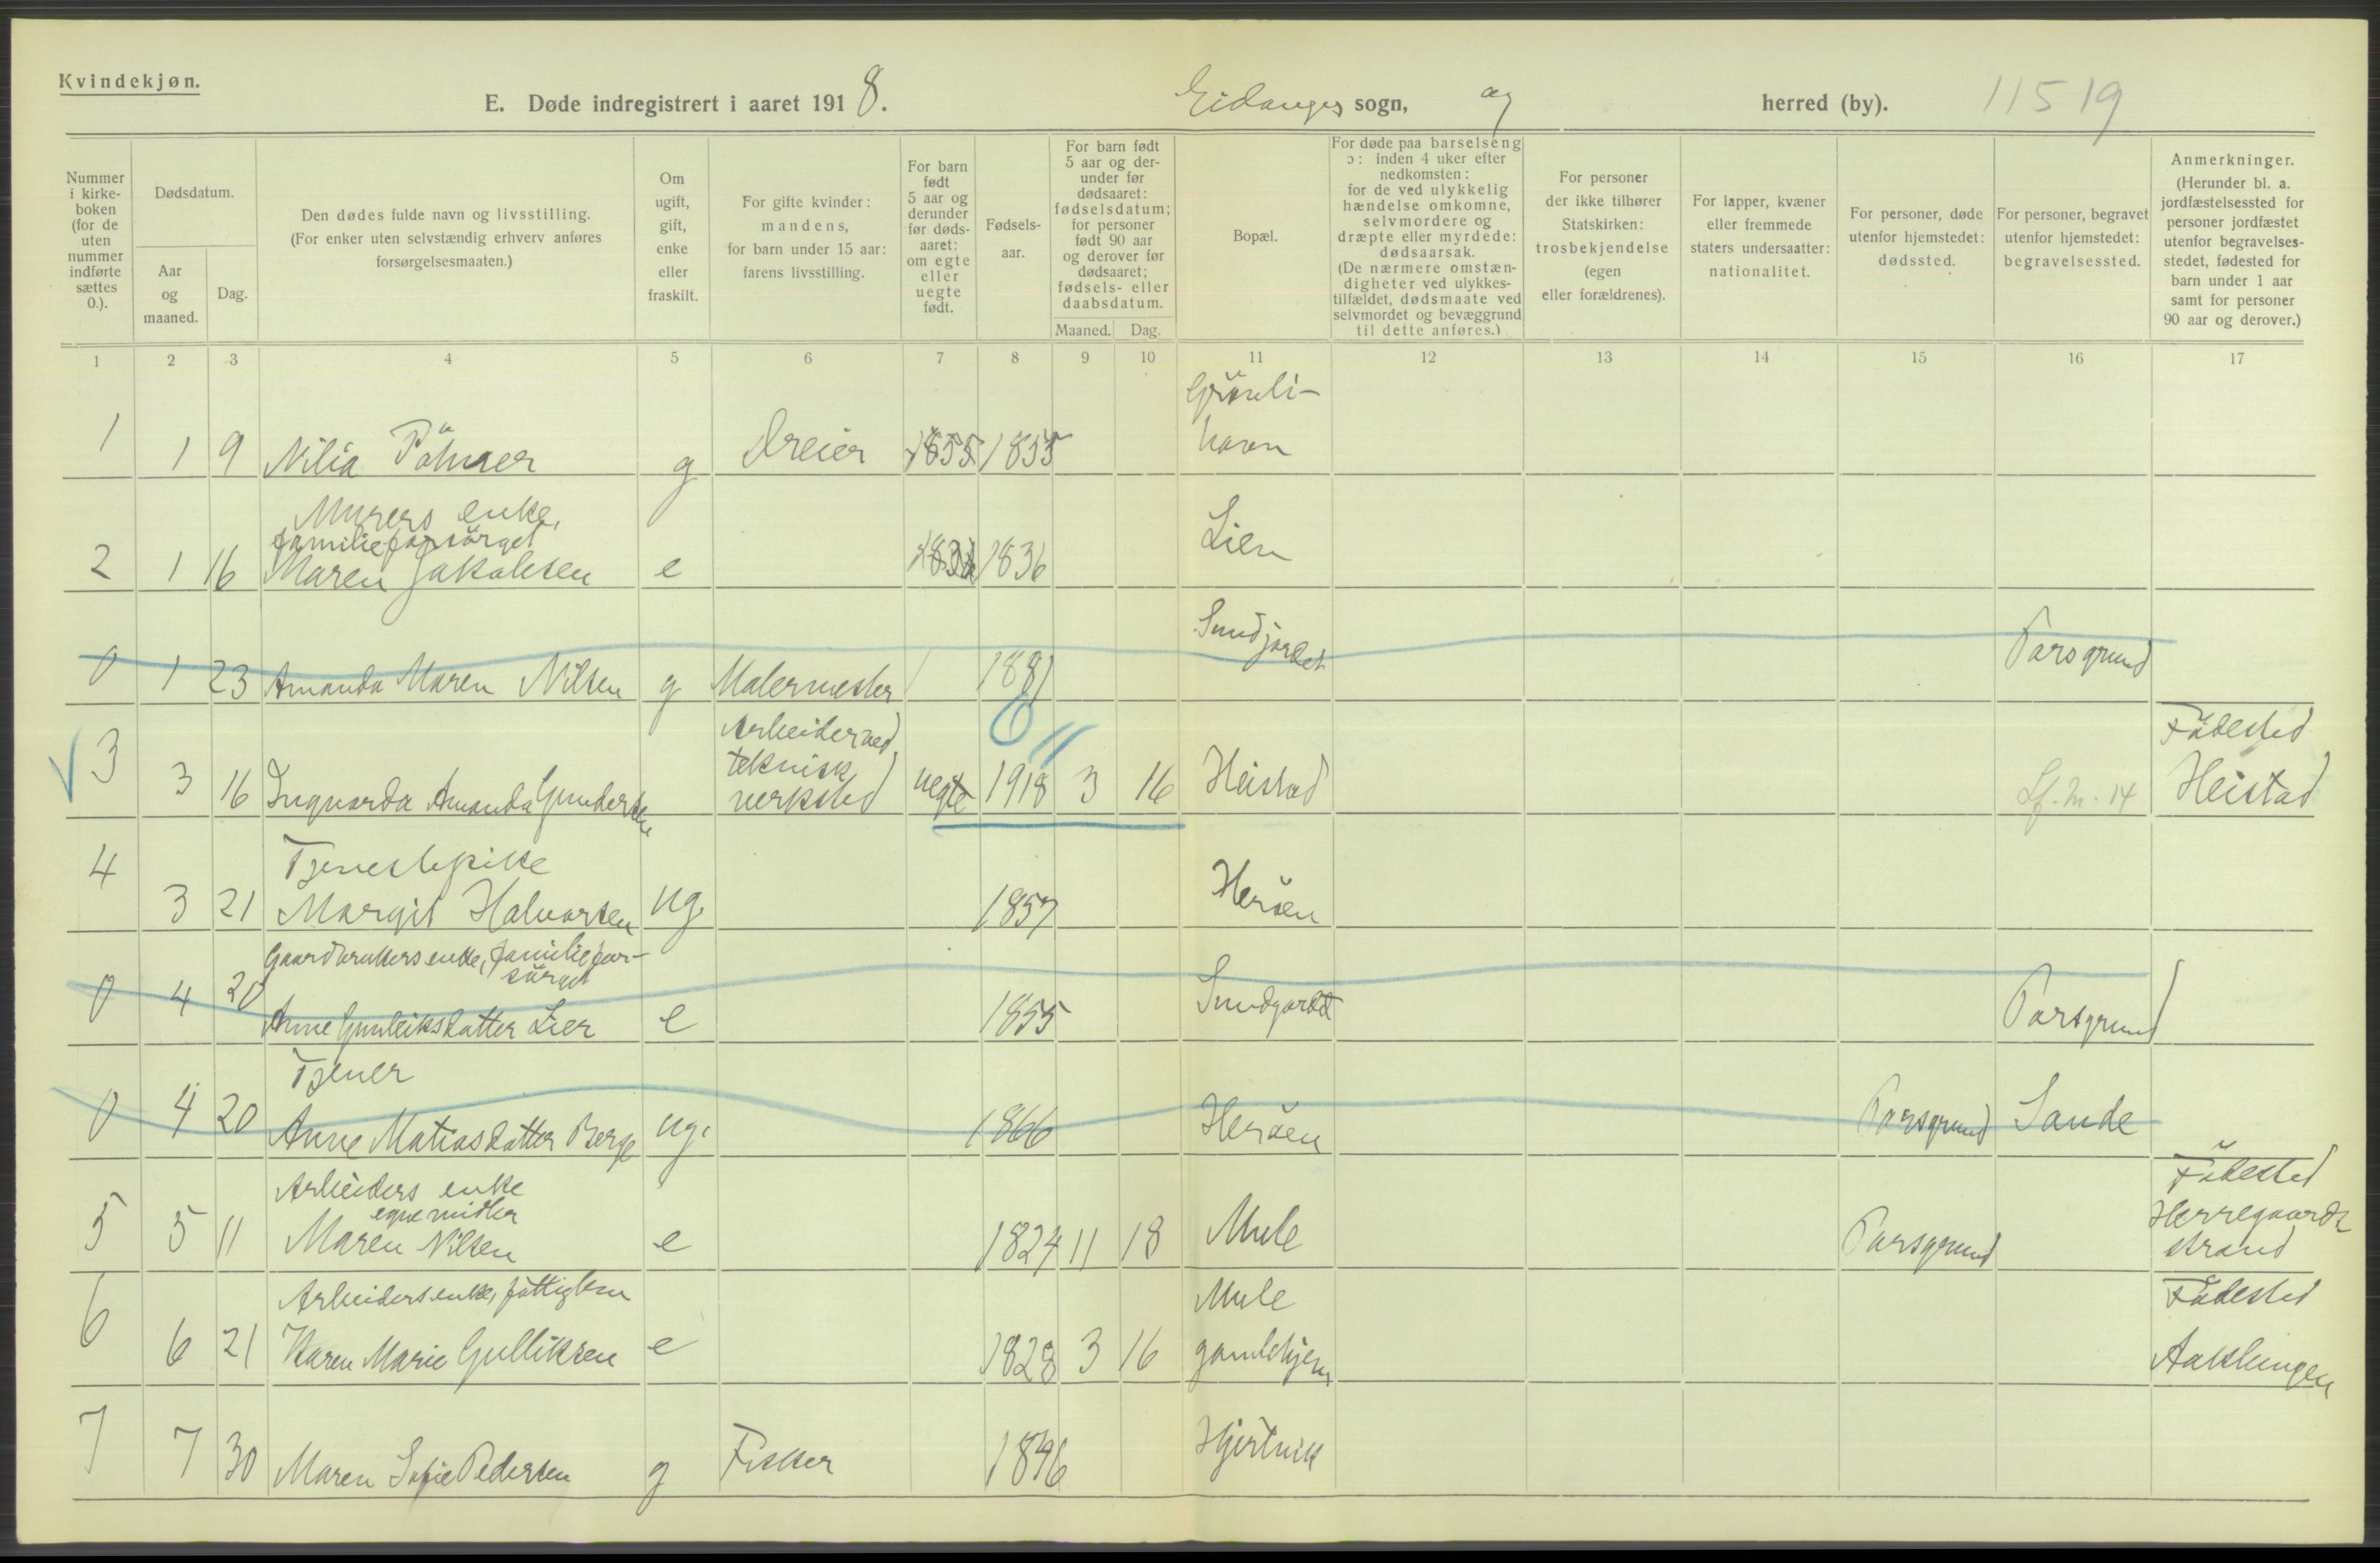 Kvindekjøn.
E. Døde indregistrert i aaret 1918. Eidanger sogn, og herred (by). 11519
Nummer i kirkeboken (for de uten nummer indførte sættes 0.).
Dødsdatum.
Aar og maaned.
Dag.
Den dødes fulde navn og livsstilling.
(For enker uten selvstændig erhverv anføres
forsørgelsesmaaten.)
Om ugift, gift, enke eller fraskilt.
For gifte kvinder:
mandens,
for barn under 15 aar:
farens livsstilling.
For barn født 5 aar og derunder før dødsaaret: om egte eller uegte født.
Fødselsaar.
For barn født 5 aar og derunder før dødsaaret: fødselsdatum; for personer født 90 aar og derover før dødsaaret; fødsels- eller daabsdatum.
Maaned. Dag.
Bopæl.
For døde paa barselseng ɔ: inden 4 uker efter nedkomsten: for de ved ulykkelig hændelse omkomne, selvmordere og dræpte eller myrdede: dødsaarsak. (De nærmere omstændigheter ved ulykkestilfældet, dødsmaate ved selvmordet og bevæggrund til dette anføres.)
For personer der ikke tilhører Statskirken: trosbekjendelse (egen eller forældrenes).
For lapper, kvæner eller fremmede staters undersaatter: nationalitet.
For personer, døde utenfor hjemstedet: dødssted.
For personer, begravet utenfor hjemstedet: begravelsessted.
Anmerkninger.
(Herunder bl. a. jordfæstelsessted for personer jordfæstet utenfor begravelsesstedet, fødested for barn under 1 aar samt for personer 90 aar og derover.)
1 2 3 4 5 6 7 8 9 10 11 12 13 14 15 16 17
1 1 9 Nilia g Dreier 1855 1855 Grønlihavn
Murers enke,
familieforsørget
2 1 16 Maren Jakobsen e 1836 Lien
0 1 23 Amanda Maren Nilsen g Malermester 1881 Sundjordet Porsgrund
3 3 16 Ingvarda Amanda Gundersen Arbeider ved teknisk verksted uegte 1918 3 16 Heistad Fødested Heistad
Tjenestepike
4 3 21 Margit Halvorsen ug. 1857 Herøen
Gaardbrukers enke, familieforsørget
0 4 20 Anne Gunleiksdatter Lier e 1855 Sundjordet Porsgrund
Tjener
0 4 20 Anne Matiasdatter Berge ug. 1866 Herøen Porsgrund Sande
Arbeiders enke
egne midler
5 5 11 Maren Nilsen e 1824 11 18 Mule Porsgrund Fødested Herregaardsstrand
Arbeiders enke, fattiglem
6 6 21 Karen Marie Gulliksen e 1828 3 16 Mule gamlehjem Fødested Aaklungen
7 7 30 Maren Sofie Pedersen g Fisker 1846 Hjertvik